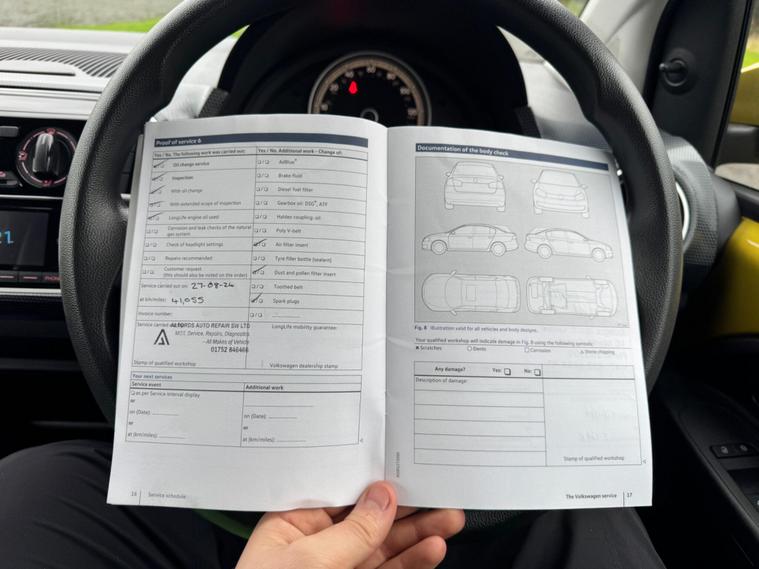 Proof of service 6
Yes / No. The following work was carried out:
Oil change service
Inspection
With oil change
With extended scope of inspection
LongLife engine oil used
Corrosion and leak checks of the natural
gas system
Check of headlight settings
Repairs recommended
Customer request
(this should also be noted on the order)
Service carried out on: 27-08-24
at km/miles: 41,055
Invoice number:
Service carried out by:
ALFORDS AUTO REPAIR SW LTD
MOT, Service, Repairs, Diagnostics
- All Makes of Vehicle
01752 846466
Stamp of qualified workshop
Yes / No. Additional work - Change of:
AdBlue®
Brake fluid
Diesel fuel filter
Gearbox oil: DSG®, ATF
Haldex coupling: oil
Poly V-belt
Air filter insert
Tyre filler bottle (sealant)
Dust and pollen filter insert
Toothed belt
Spark plugs
LongLife mobility guarantee:
Volkswagen dealership stamp
Your next services
Service event
Additional work
as per Service interval display
or
on (Date):
or
at (km/miles):
on (Date):
or
at (km/miles):
16 Service schedule
Documentation of the body check
Fig. 8 Illustration valid for all vehicles and body designs.
Your qualified workshop will indicate damage in Fig. 8 using the following symbols:
Scratches
Dents
Corrosion
Stone chipping
Any damage? Yes: No:
Description of damage:
Stamp of qualified workshop
The Volkswagen service 17